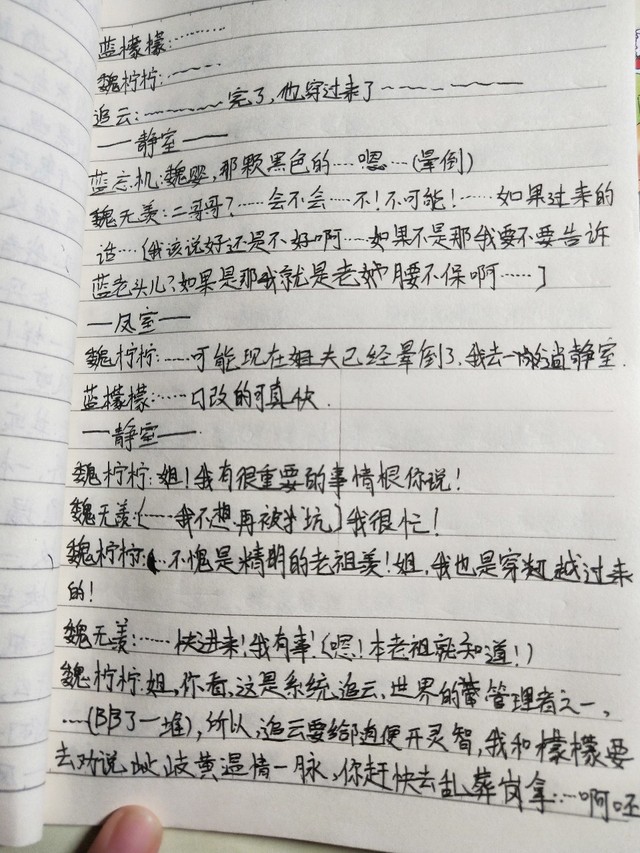 蓝檬檬:……
魏柠柠:……
追云:~~~完了,他穿过来了~~~
——静室——
蓝忘机:魏婴,那颗黑色的……嗯……(晕倒)
魏无羡:二哥哥?……会不会……不!不可能!……如果过来的
话……(我该说好还是不好啊……如果不是那我要不要告诉
蓝老头儿?如果是那我就是老 腰不保啊……]
——凤室——
魏柠柠:……可能现在姐夫已经晕倒了.我去一 静室.
蓝檬檬:……口改的可真快.
——静室——
魏柠柠:姐!我有很重要的事情根你说!
魏无羡:(……我不想再被 坑]我很忙!
魏柠柠:…不愧是精明的老祖羡!姐,我也是穿越过来
的!
魏无羡:……快进来!我有事!(嗯!本老祖就知道!)
魏柠柠:姐,你看,这是系统追云,世界的 管理者之一,
……(BB了一堆),所以,追云要给 便开灵智,我和檬檬要
去劝说 岐黄温情一脉,你赶快去乱葬岗拿…啊呸